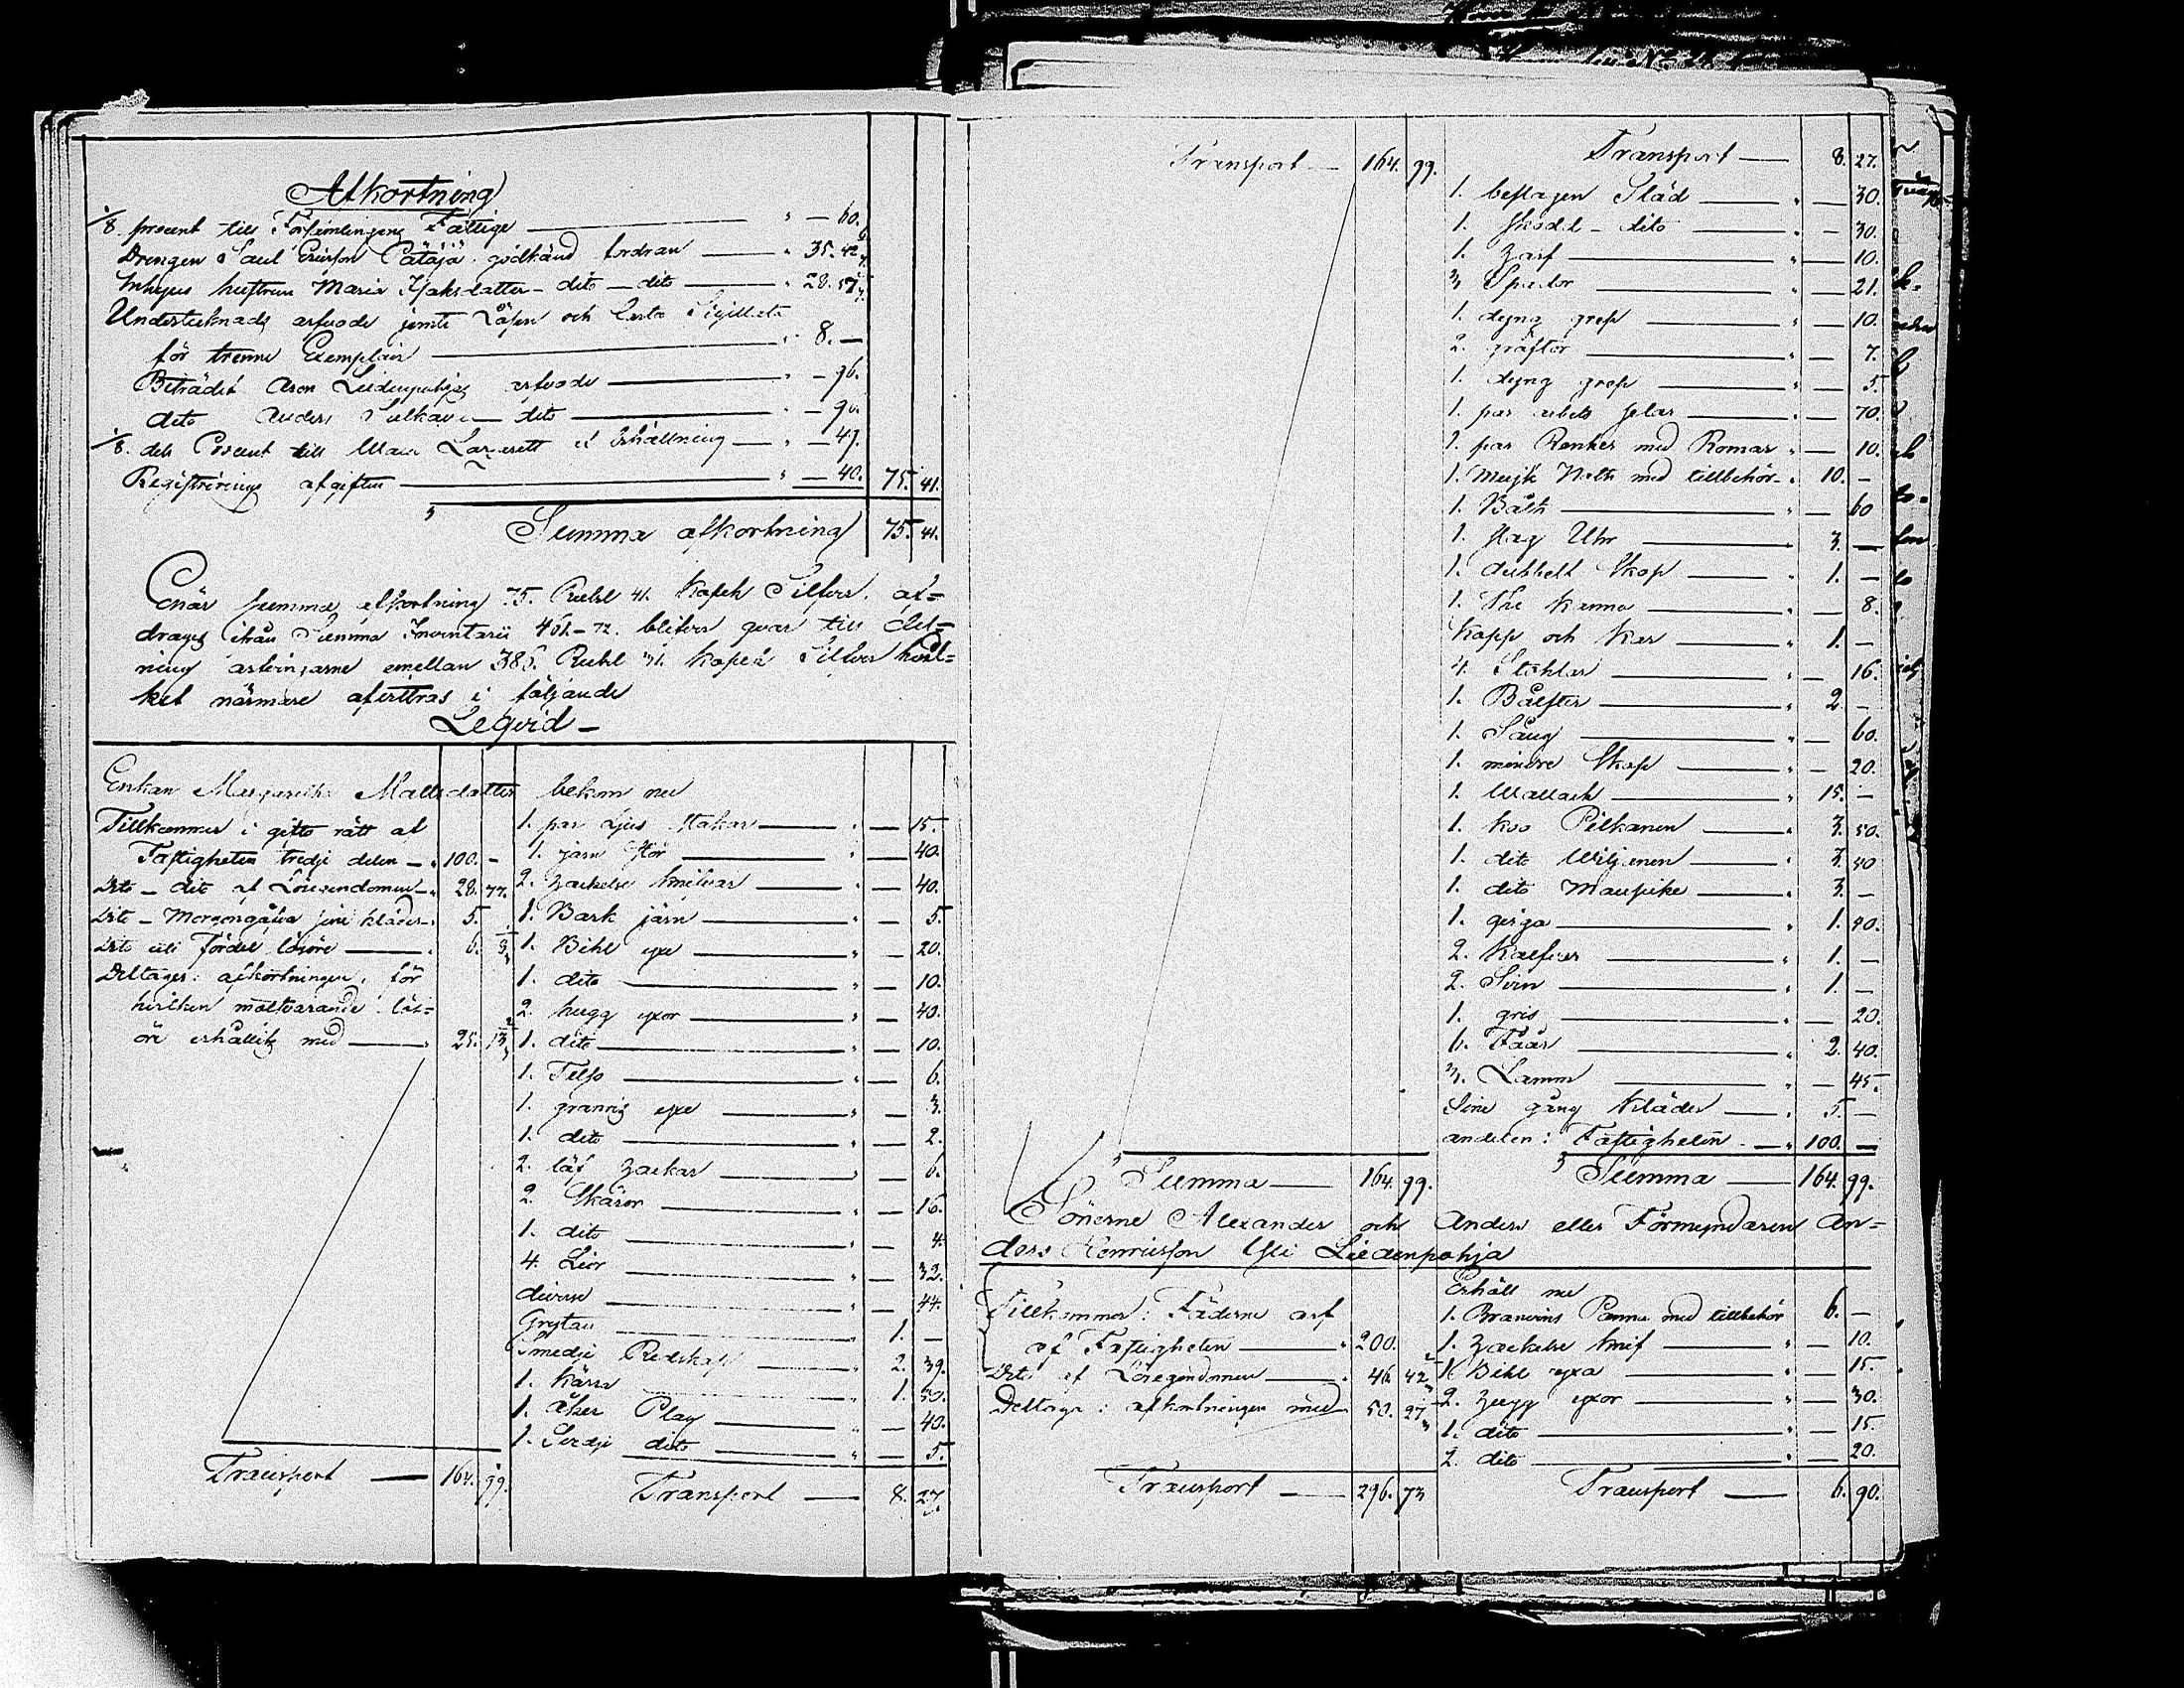 Afkortning
1/8. procent till Församlingens Fattige — " — 60.
Drengen Saul Ericsson Pätäjä godkänd fordran — " 35. 42
Inhyses hustrun Maria Isaksdatter — dito — dito — " 28. 57
Undertecknads arfvode jemte Lösen och Carta Sigillata
för trenne Exemplair — " 8. —
Biträdet Aron Liedenpohjas arfvode — " — 96.
dito Anders Sulkava — dito — " — 90.
1/8. dels Procent till Wasa Lazarett underhållning — " — 49.
Registrerings afgiften — " — 40. 75. 41.
Summa afkortning 75. 41.
Enär summa afkortning 75. Rubel 41. Kopek Silfver, af=
drages ifrån Summa Inventarii 461-72. blifver qvar till del=
ning arfvingarne emellan 386. Rubel 31. Kopek Silfver hvil=
ket närmare utföres i följande
Leqvid —
Enkan Margaretha Mattsdatter bekom nu
Tillkommer i gifto rätt af
Fastigheten tredje delen — " 100. —
Dito — dito af Lösegendomen — " 28. 77.
Dito — Morgongåfva sine kläder " 5.
Dito uti Fördel lösöre — " 6. 3
Deltager: afkortningen, för
hvilken motsvarande lös=
öre erhållits med — " 25. 13
Transport — 164. 99.
1. par Ljus stakar — " — 15.
1. jern stör — " — 40.
2. Hackelse knifvar — " — 40.
1. Bark järn — " — 5.
1. Bihl yxe — " — 20.
1. dito — " — 10.
2. hugg yxor — " — 40.
1. dito — " — 10.
1. Telso — " — 6.
1. granris yxe — " — 3.
1. dito — " — 2.
2. löf hackar — " — 6.
2. Skäror — " — 16.
1. dito — " — 4.
4. Liar — " — 32.
diverse — " — 44.
Grytan — " 1. —
Smedje Redskap — " 2. 39.
1. kärra — " 1. 30.
1. åker Plog — " — 40.
1. Sredje dito — " — 5.
Transport — 8. 27.
Transport — 164. 99.
Summa — 164. 99.
Transport — 8. 27.
1. beslagen Släd — " — 30.
1. skodd — dito — " — 30.
1. Harf — " — 10.
3 Spador — " — 21.
1. dyng grep — " — 10.
2. gräftor — " — 7.
1. dyng grep — " — 5
1. par arbets selar — " — 70.
1. par Renker med Romar " — 10.
1. Mujk Noth med tillbehör " 10. —
1. Båth — " — 60
1. slag Uhr — " 3. —
1. dubbelt skåp — " 1. —
1. The kanna — " — 8.
Kopp och kar — " 1. —
4. Stohlar — " — 16.
1. Bålster — " 2. —
1. Säng — " — 60.
1. mindre Skåp — " — 20.
1. Wallach — " 15. —
1. koo Pilkanen — " 3. 50.
1. dito Wiljanen — " 3. 40
1. dito Mansike — " 3. —
1. qviga — " 1. 40.
2. Kalfvar — " 1. —
2. Svin — " 1. —
1. gris — " — 20.
6. Fåår — " 2. 40.
3. Lamm — " — 45.
Sine gång kläder — " 5. —
andelen: Fastigheten — " 100. —
Summa — 164. 99.
Sönerne Alexander och Anders eller Förmyndaren An=
ders Henricsson Yli Liedenpohja
Tillkommer: Fäderne arf
af Fastigheten — " 200.
Dito af Lösegendomen — " 46. 42
Deltaga: afkortningen med 50. 27
Transport — 296. 73
Erhåll nu
1. Branvins Panna med tillbehör 6. —
1. Hackelse knif — " — 10.
1. Bihl yxa — " — 15.
2. hugg yxor — " — 30.
1. dito — " — 15.
2. dito — " — 20.
Transport — 6. 90.